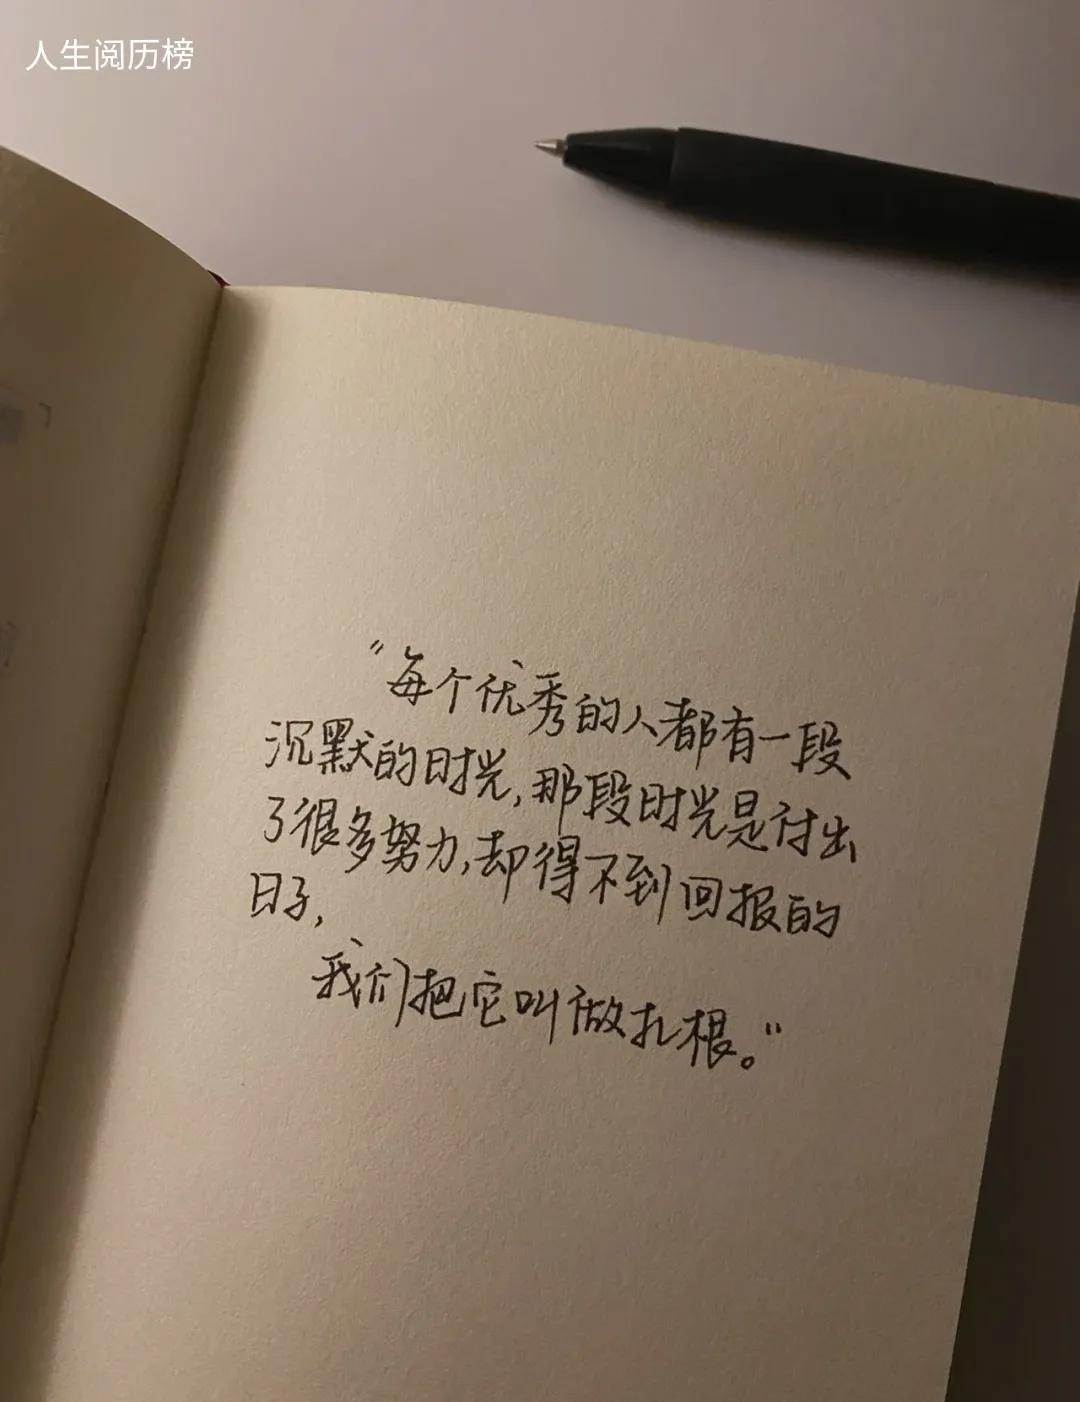 人生阅历榜
“每个优秀的人都有一段
沉默的时光,那段时光是付出
了很多努力,却得不到回报的
日子,
我们把它叫做扎根。”